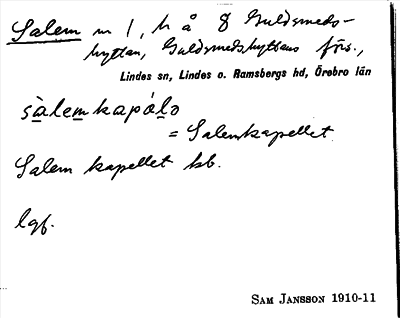 Salem m 1, h å 8 Guldsmeds-
hyttan, Guldsmedshyttans förs.,
Lindes sn, Lindes o. Ramsbergs hd, Örebro län
sàlemkapálo
= Salemkapellet
Salem kapellet kb.
lgf.
SAM JANSSON 1910-11